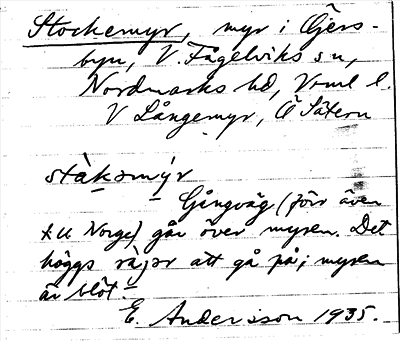 Stockemyr, myr i Öjers-
byn, V. Fågelviks sn,
Nordmarks hd, Vrml l.
V Långemyr, Ö Sätern
stàkemýr
Gångväg (förr även
t. u. Norge) går över myren. Det
höggs ràjər att gå på; myren
är blöt.
E. Andersson 1935.